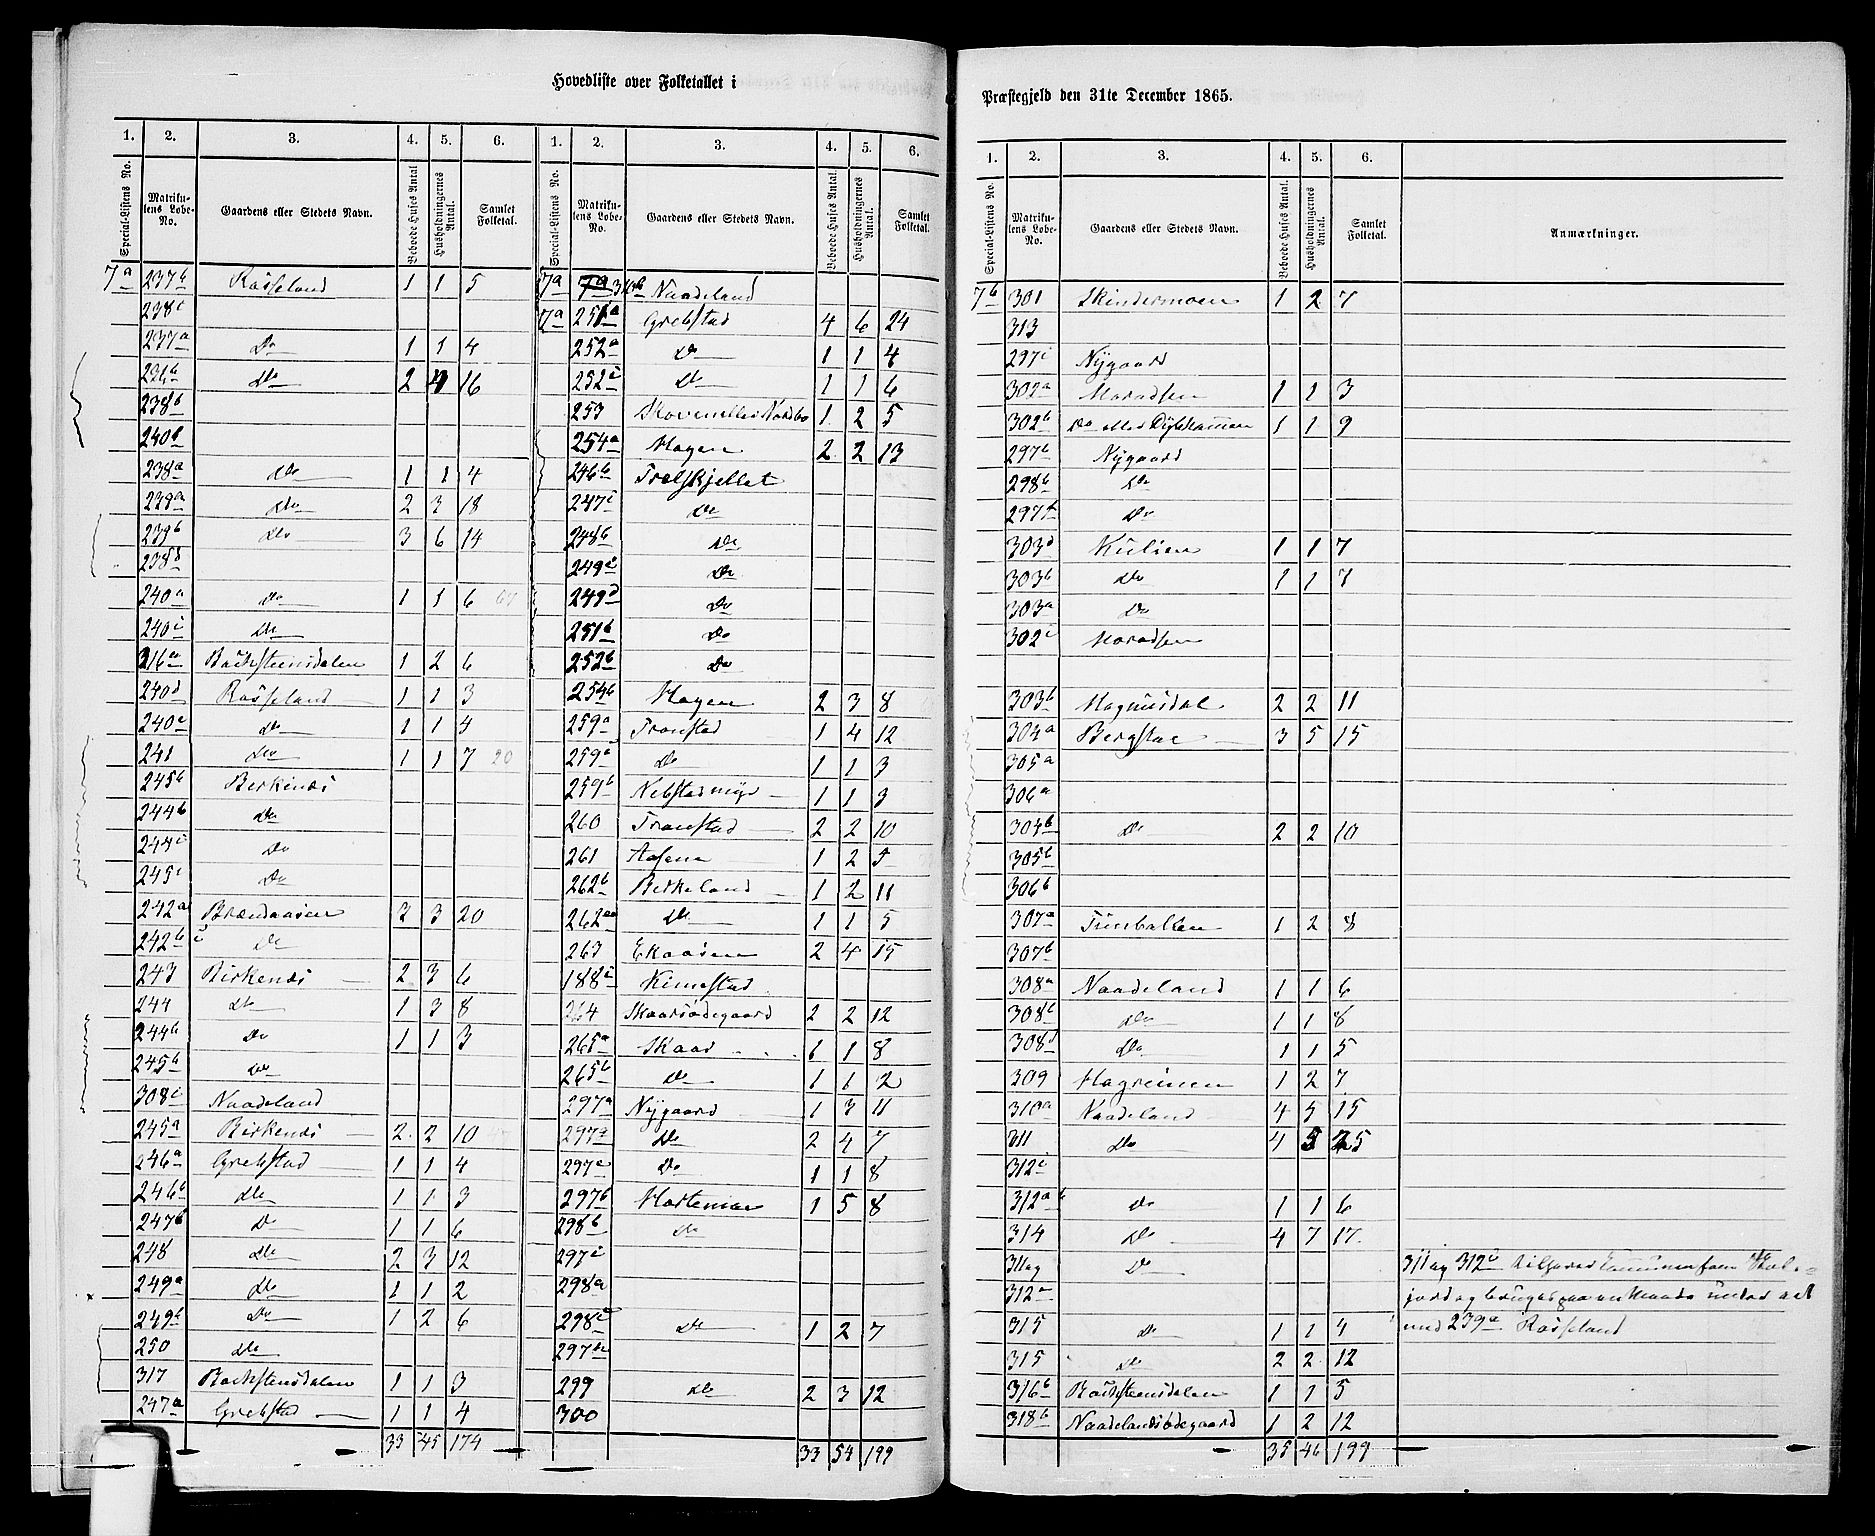 Hovedliste over Folketallet i
Præstegjeld den 31te December 1865.
1. 2. 3. 4. 5. 6.
Special-Listens No. Matrikulens Løbe-No. Gaardens eller Stedets Navn. Beboede Huses Antal Husholdningernes Antal. Samlet Folketal.
7a 237b Rosseland 1 1 5
238c
237a Do 1 1 4
236b Do 2 4 16
238b
240e
238a Do 1 1 4
239a Do 2 3 18
239b Do 3 6 14
238d
240a Do 1 1 6 67
240c Do
316a Backsteensdalen 1 2 6
240d Rosseland 1 1 3
240e Do 1 1 4
241 Do 1 1 7 20
245b Birkenes
244b Do
244c Do
245c Do
242a Brændaasen 3 3 20
242b c Do
243 Birkenes 2 3 6
244 Do 1 3 8
244b Do 1 1 3
245b Do
308c Naadeland
245a Birkenes 2 2 10
246a Grebstad 1 1 4
246b Do 1 1 3
247b Do 1 1 6
248 Do 2 3 12
249a Do 1 1 2
249b Do 1 2 6
250 Do
317 Backsteensdalen 1 1 3
247a Grebstad 1 1 4
33 45 174
1. 2. 3. 4. 5. 6.
Special-Listens No. Matrikulens Løbe-No. Gaardens eller Stedets Navn. Beboede Huses Antal. Husholdningernes Antal. Samlet Folketal.
7a Naadeland
7a 251a Grebstad 4 6 24
252a Do 1 1 4
252c Do 1 1 6
253 1 2 5
254a Hagen 2 2 13
246b Trælskjellet
247c Do
248b Do
249c Do
249d Do
251b Do
252b Do
254b Hagen 2 3 8
259a Tronstad 1 4 12
259c Do 1 1 3
259b Nebstadmyr 1 1 3
260 Tronstad 2 2 10
261 Aasene 1 2 5
262b Birkeland 1 2 11
262a Do 1 1 5
263 Ekaasen 2 4 15
188c Kimestad
264 Skaarsødegaard 2 2 12
265a Skaar 1 1 8
265b Do 1 1 2
297a Nygaard 1 3 11
297a Do 2 4 7
297e Do 1 1 8
297b Hortemoe 1 5 8
298b Do
297c
298a
298c Do 1 2 7
297b
299 Do 2 3 12
300
33 54 199
1. 2. 3. 4. 5. 6.
Special-Listens No. Matrikulens Løbe-No. Gaardens eller Stedets Navn. Beboede Huses Antal. Husholdningernes Antal. Samlet Folketal. Anmærkninger.
7b 301 Skindermoen 1 2 7
313
297i Nygaard
302a Moradsen 1 1 3
302b Do 1 1 9
297b Nygaard
298b Do
297f Do
303d Kulien 1 1 7
303b Do 1 1 7
303a Do
302c Moradsen
303b Magnusdal 2 2 11
304a Bergstøe 3 5 15
305a
306a
304b Do 2 2 10
305b
306b
307a Tunballen 1 2 8
307b
308a Naadeland 1 1 6
308b Do 1 1 8
308d Do 1 1 5
309 Hagreinen 1 2 7
310a Naadeland 4 5 15
311 Do 4 5 25
312c
312a b Do 1 1 6
314 Do 4 7 17
311 og Do 311 og 312c tilhører Kommunen som Skole-
312a jord og bruges under eet
315 Do 1 1 4 med 239a Rosseland
315 Do 2 2 12
316b Backsteensdalen 1 1 5
318b Naadelandsødegaard 1 2 12
35 46 199